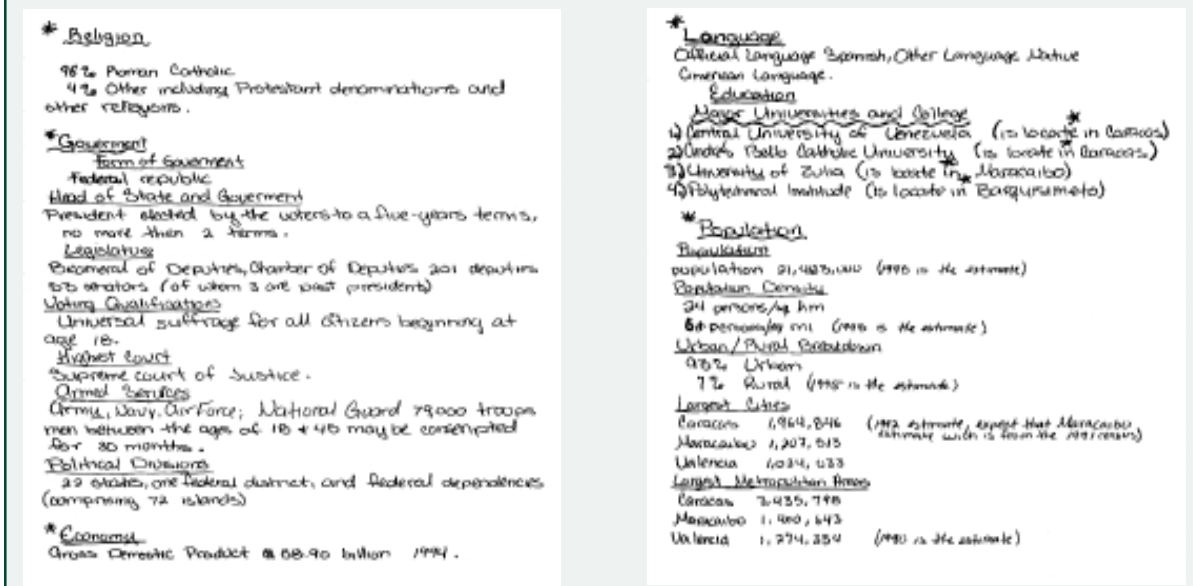 * Religion
96% Roman Catholic
4% Other including Protestant denominations and
other religyons.
* Goverment
Form of Goverment
Federal republic
Head of State and Goverment
President elected by the voters to a five-years terms,
no more then 2 terms.
Legislature
of Deputies, Chamber of Deputies 201 deputies
senators (of whom 3 are past presidents)
Voting Qualifications
Universal suffrage for all citizens beginning at
age 18.
Highest Court
Supreme court of Justice.
Armed Services
Army, Navy, Air Force; National Guard 79,000 troops
men between the ages of 18 + 45 may be conscripted
for 30 months.
Political Divisions
22 states, one federal district, and federal dependencies
(comprising 72 islands)
* Economy
Gross Domestic Product 58.90 billion 1994.
* Language
Official Language Spanish, Other Language Native
Language.
Education
Major Universities and College
1) Central University of Venezuela (is locate in Caracas)
2) Andrés Bello Catholic University (is locate in Caracas)
3) University of Zulia (is locate in Maracaibo)
4) (is locate in
* Population
Population
population (1995 is the estimate)
Population Density
24 persons/sq km
persons/sq mi (1995 is the estimate)
Urban/Rural Breakdown
93% Urban
7% Rural (1995 is the estimate)
Largest Cities
Caracas 1,964,846 (1992 estimate, expept that Maracaibo
estimate wich is from the 1991 census)
Maracaibo 1,207,513
Valencia 1,034,033
Largest Metropolitan Areas
Caracas 2,435,798
Maracaibo 1,400,643
Valencia 1,274,354 (1990 is the estimate)